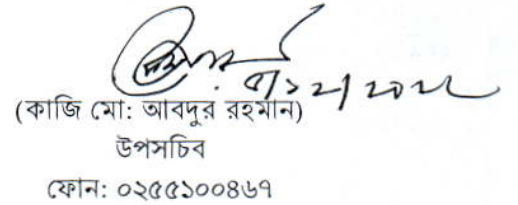 (কাজি মো: আবদুর রহমান)
উপসচিব
ফোন: ০২৫৫১০০৪৬৭